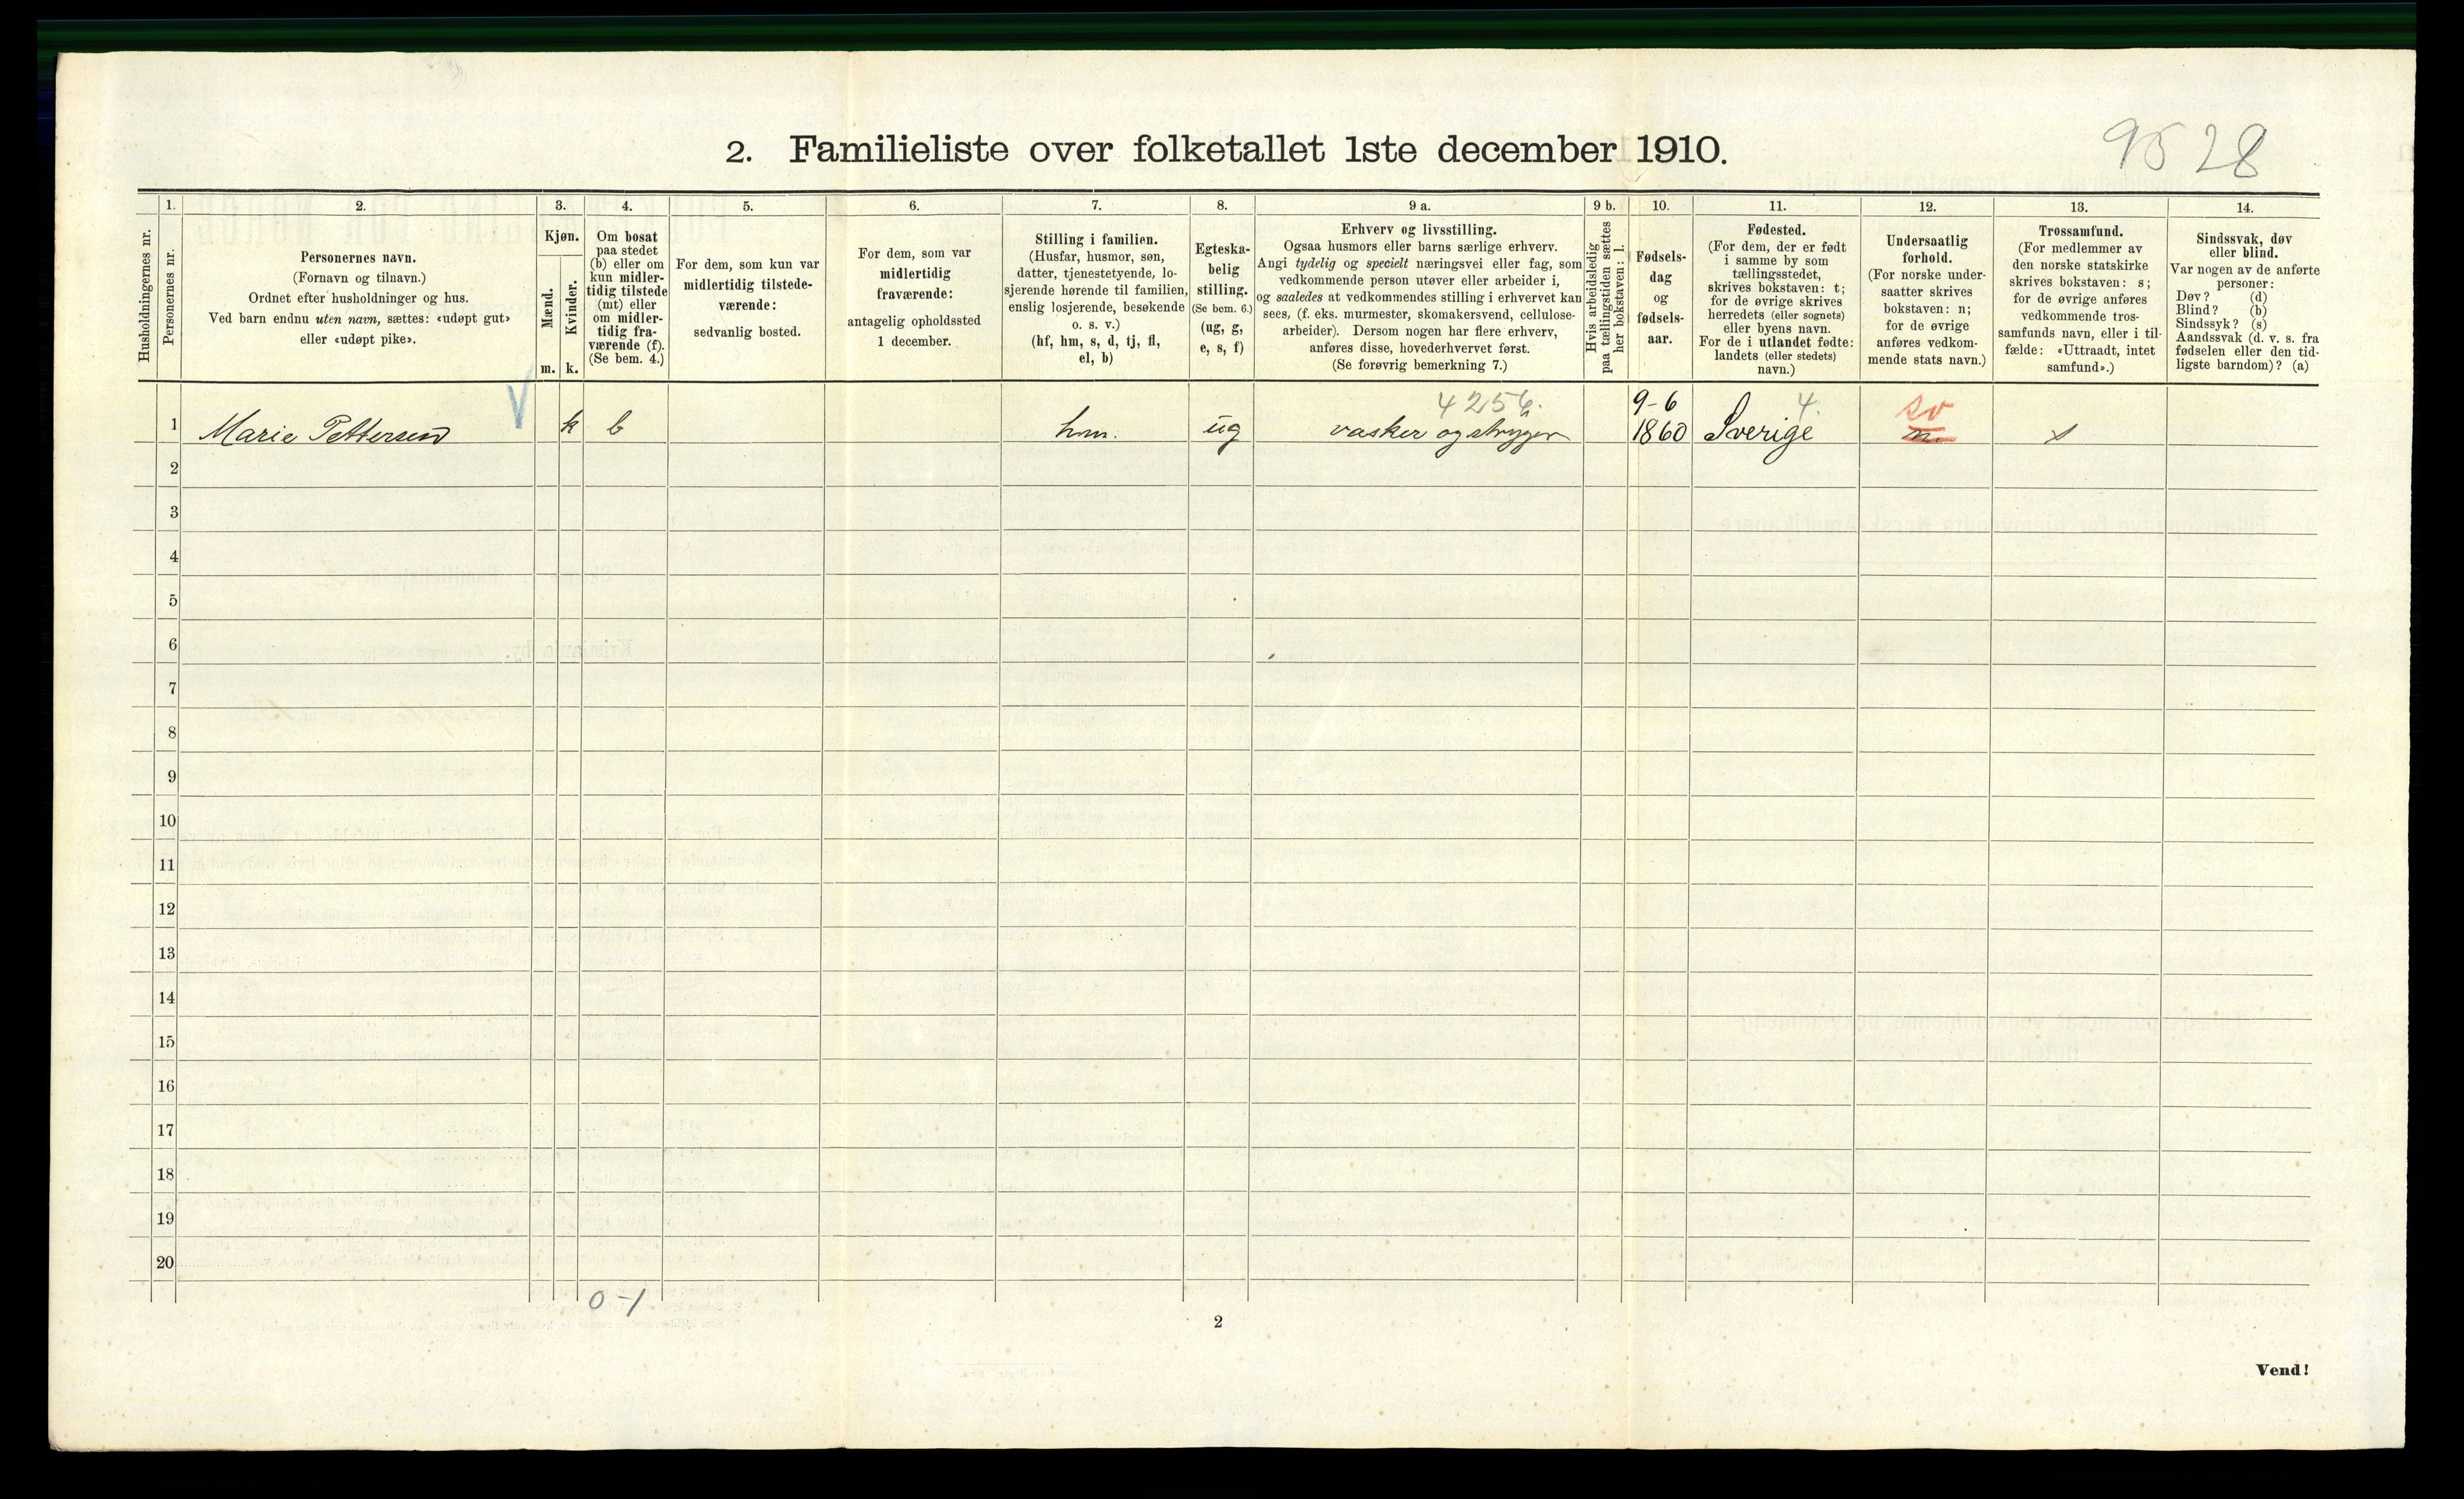 9528
2. Familieliste over folketallet 1ste december 1910.
Husholdningernes nr.
1.
Personernes nr.
2.
Personernes navn.
(Fornavn og tilnavn.)
Ordnet efter husholdninger og hus.
Ved barn endnu uten navn, sættes: «udøpt gut»
eller «udøpt pike».
3.
Kjøn.
Mænd.
m.
Kvinder.
k.
4.
Om bosat
paa stedet
(b) eller om
kun midler-
tidig tilstede
(mt) eller
om midler-
tidig fra-
værende (f).
(Se bem. 4.)
5.
For dem, som kun var
midlertidig tilstede-
værende:
sedvanlig bosted.
6.
For dem, som var
midlertidig
fraværende:
antagelig opholdssted
1 december.
7.
Stilling i familien.
(Husfar, husmor, søn,
datter, tjenestetyende, lo-
sjerende hørende til familien,
enslig losjerende, besøkende
o. s. v.)
(hf, hm, s, d, tj, fl,
el, b)
8.
Egteska-
belig
stilling.
(Se bem. 6.)
(ug, g,
e, s, f)
9 a.
Erhverv og livsstilling.
Ogsaa husmors eller barns særlige erhverv.
Angi tydelig og specielt næringsvei eller fag, som
vedkommende person utøver eller arbeider i,
og saaledes at vedkommendes stilling i erhvervet kan
sees, (f. eks. murmester, skomakersvend, cellulose-
arbeider). Dersom nogen har flere erhverv,
anføres disse, hovederhvervet først.
(Se forøvrig bemerkning 7.)
9 b.
Hvis arbeidsledig
paa tællingstiden sættes
her bokstaven: l.
10.
Fødsels-
dag
og
fødsels-
aar.
11.
Fødested.
(For dem, der er født
i samme by som
tællingsstedet,
skrives bokstaven: t;
for de øvrige skrives
herredets (eller sognets)
eller byens navn.
For de i utlandet fødte:
landets (eller stedets)
navn.)
12.
Undersaatlig
forhold.
(For norske under-
saatter skrives
bokstaven: n;
for de øvrige
anføres vedkom-
mende stats navn.)
13.
Trossamfund.
(For medlemmer av
den norske statskirke
skrives bokstaven: s;
for de øvrige anføres
vedkommende tros-
samfunds navn, eller i til-
fælde: «Uttraadt, intet
samfund».)
14.
Sindssvak, døv
eller blind.
Var nogen av de anførte
personer:
Døv? (d)
Blind? (b)
Sindssyk? (s)
Aandssvak (d. v. s. fra
fødselen eller den tid-
ligste barndom)? (a)
4256. 9-6 4 sv
1 Marie Pettersen k b hm. ug vasker og stryger 1860 Sverige n. s
2
3
4
5
6
7
8
9
10
11
12
13
14
15
16
17
18
19
20
0-1
2
Vend!